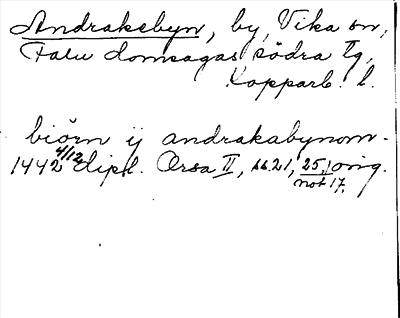 Andraksbyn, by, Vika sn,
Falu domsagas södra tg,
Kopparb. l.
biörn ij andrakabynom -
1442 4/12 dipl. Orsa II, ss. 21, 25, orig.
not 17.